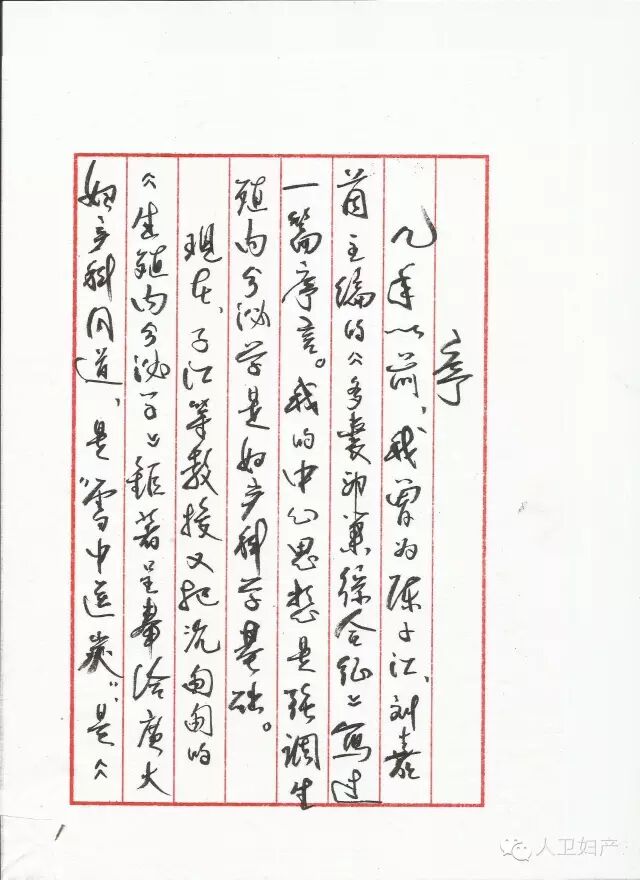 序
几年以前，我曾为陈子江、刘嘉
茵主编的《多囊卵巢综合征》写过
一篇序言。我的中心思想是强调生
殖内分泌学是妇产科学基础。
现在，子江等教授又把沉甸甸的
《生殖内分泌学》钜著呈奉给广大
妇产科同道，是“雪中送炭”，是《
1
人卫妇产